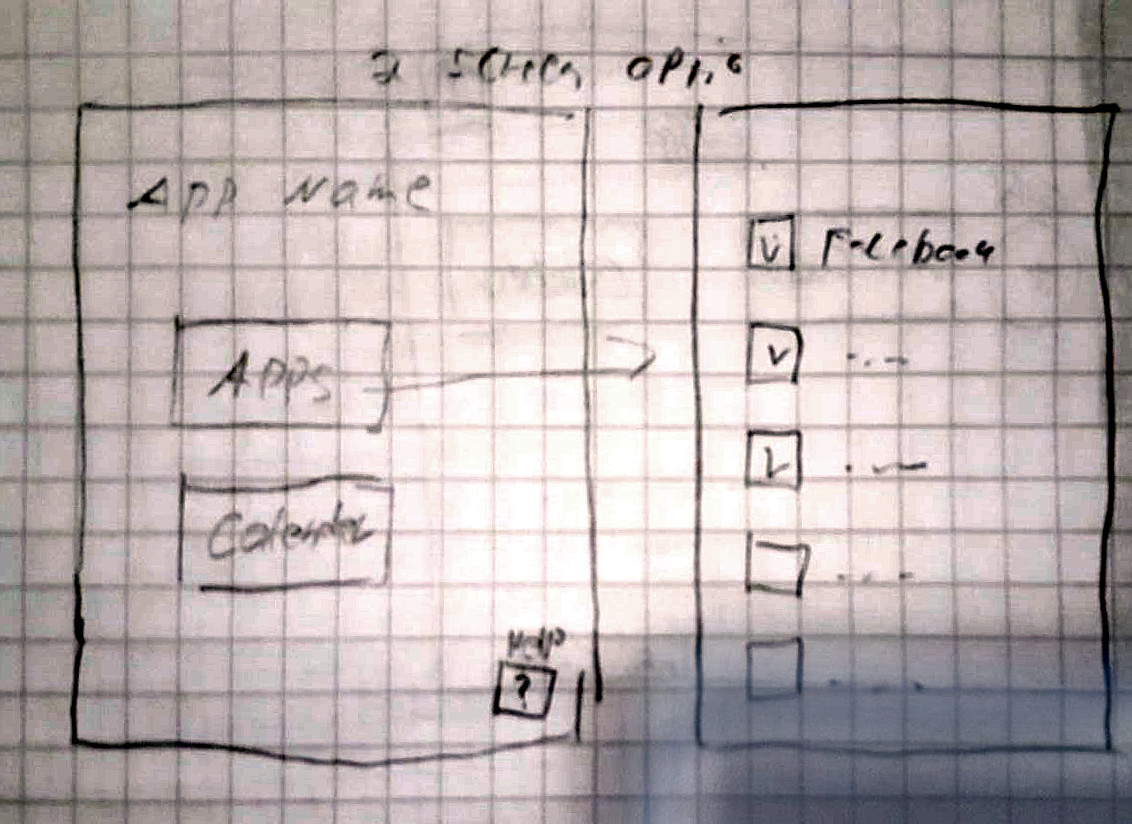 2 Screen optio
App Name
Apps
Calendar
Help
?
Facebook